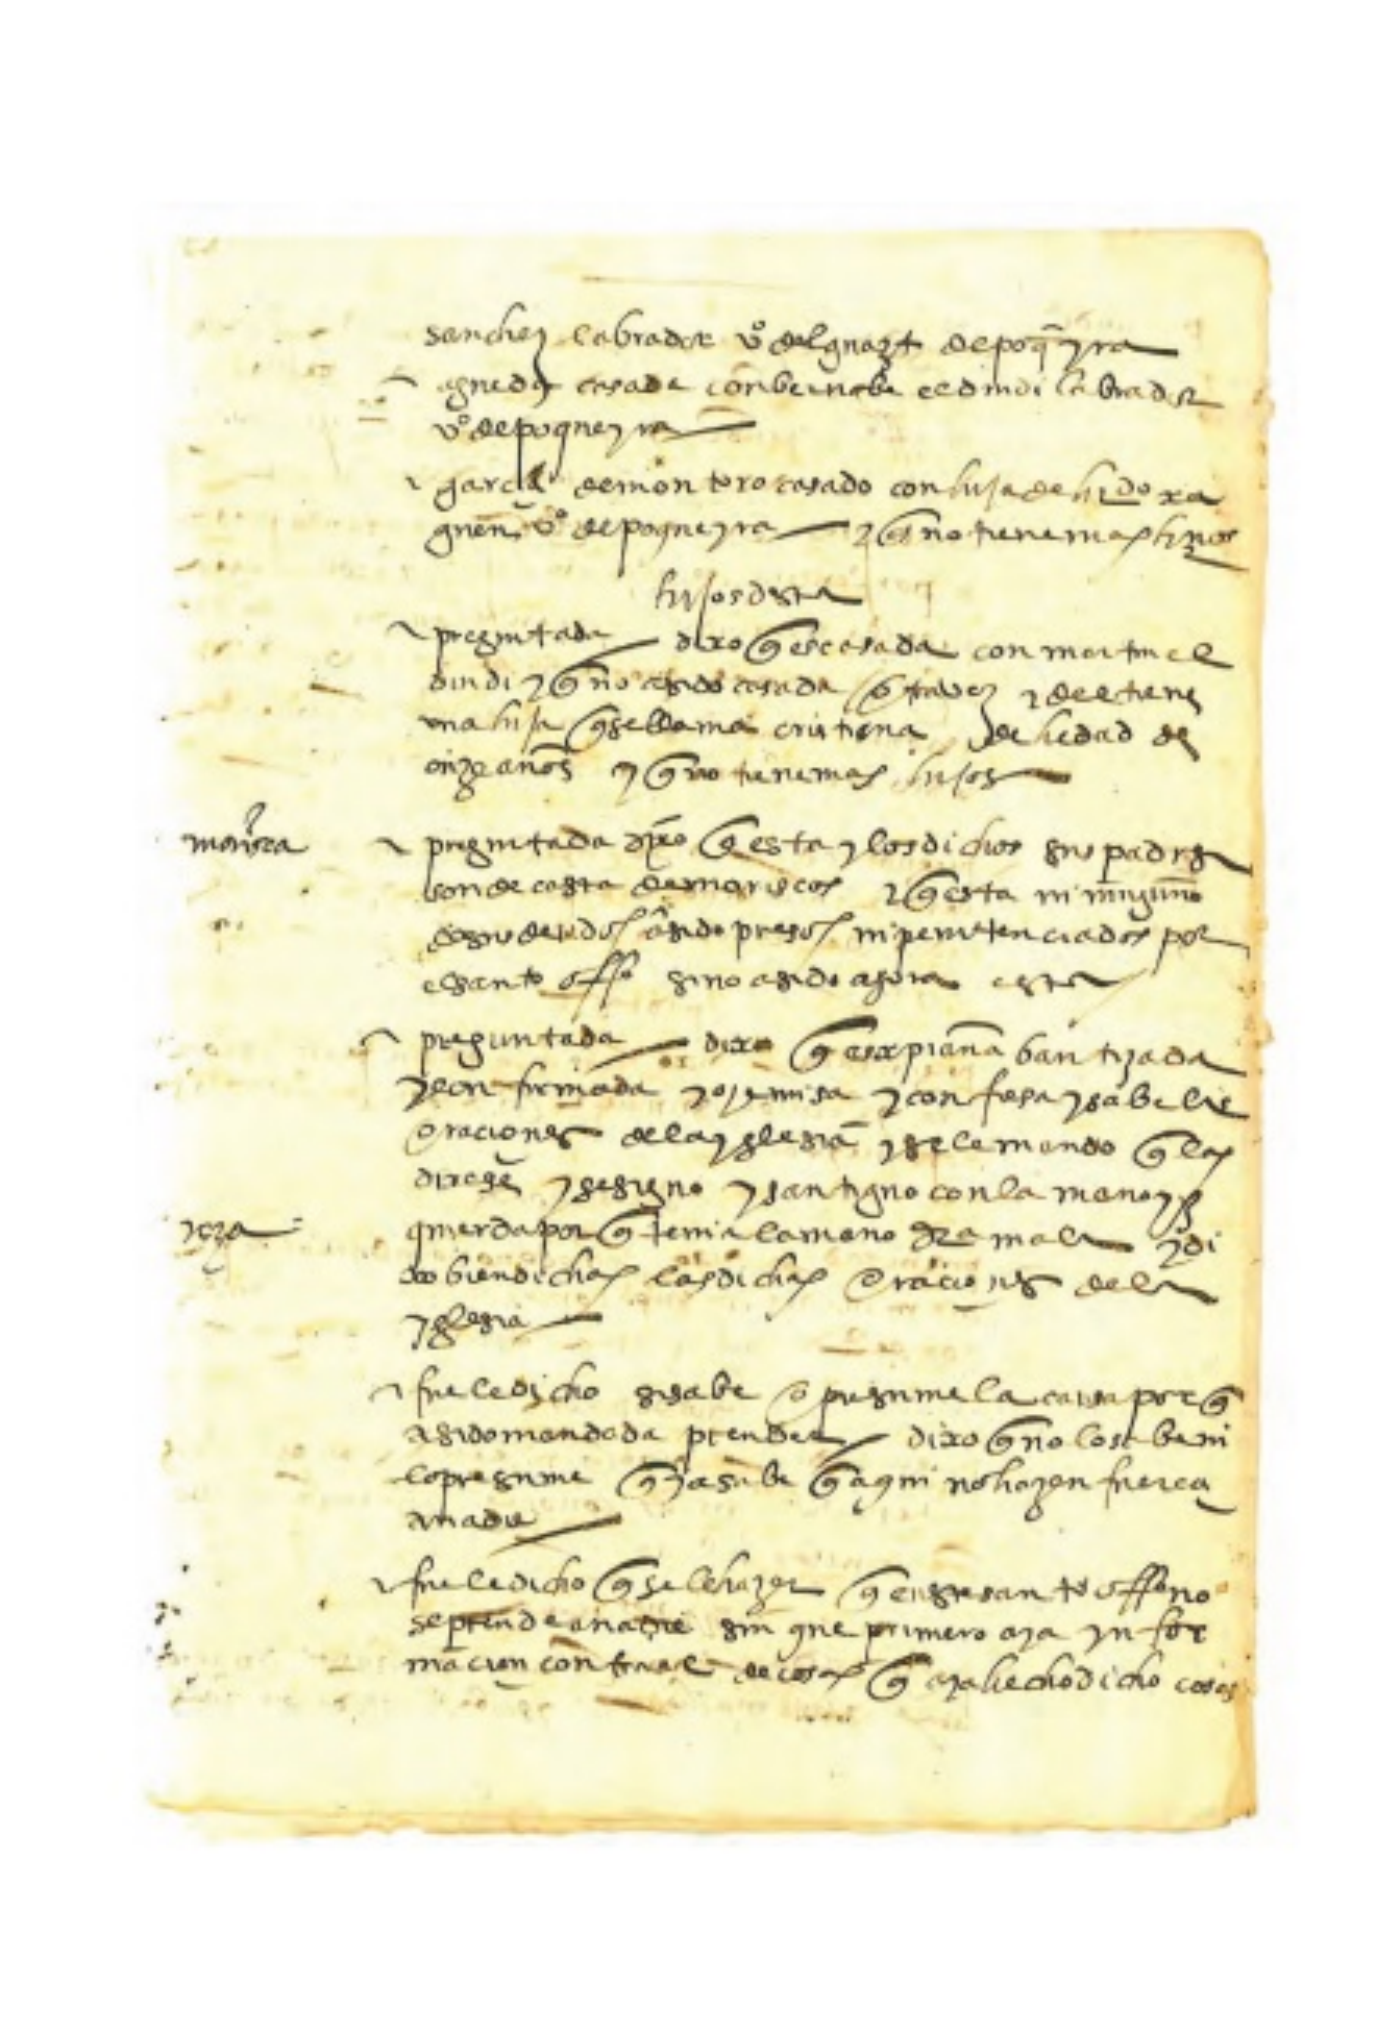 sanchez labrador vº del guazt de poq̃yra
agueda casada con bernabe el dindi labrador
vº de poqueyra
garcia de montoro casado con hija de hrdo xa
guen vº de poqueyra y q̃ no tiene mas hrnos
hijos desta
preguntada dixo q̃ es casada con martin el
dindi y q̃ no a sido casada otra vez y del tiene
una hija q̃ se llama cristiana de hedad de
onze años y q̃ no tiene mas hijos
morisca
preguntada dixo q̃ esta y los dichos sus padres
son de casta de moriscos y q̃ esta ni ninguno
de sus deudos a sido presos ni penitenciados por
el santo offº sino a sido agora esta
preguntada dixo q̃ es xpiana bautizada
y confirmada y oye misa y confiesa y sabe las
oraciones de la yglesia y se le mando q̃ las
dixese y se signo y santiguo con la mano yz
yzqa
quierda por q̃ tenia la mano dra mala y di
xo bien dichas las dichas oraciones de la
yglesia
fuele dicho si sabe o presume la causa por q̃
a sido mandada prender dixo q̃ no lo sabe ni
lo presume q̃ ya sabe q̃ aqui no hazen fuerça
a nadie
fuele dicho q̃ se le haze q̃ en este santo offº no
se prende a nadie sin que primero aya infor
macion contra el de cosas q̃ aya hecho dicho cosas